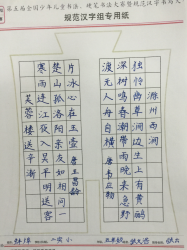 规范汉字组专用纸
滁州西涧
独怜幽草涧边生上有黄鹂
深树鸣春潮带雨晚来急野
渡无人舟自横唐韦应物
芙蓉楼送辛渐
寒雨连江夜入吴平明送客
楚山孤洛阳亲友如相问一
片冰心在玉壶唐王昌龄